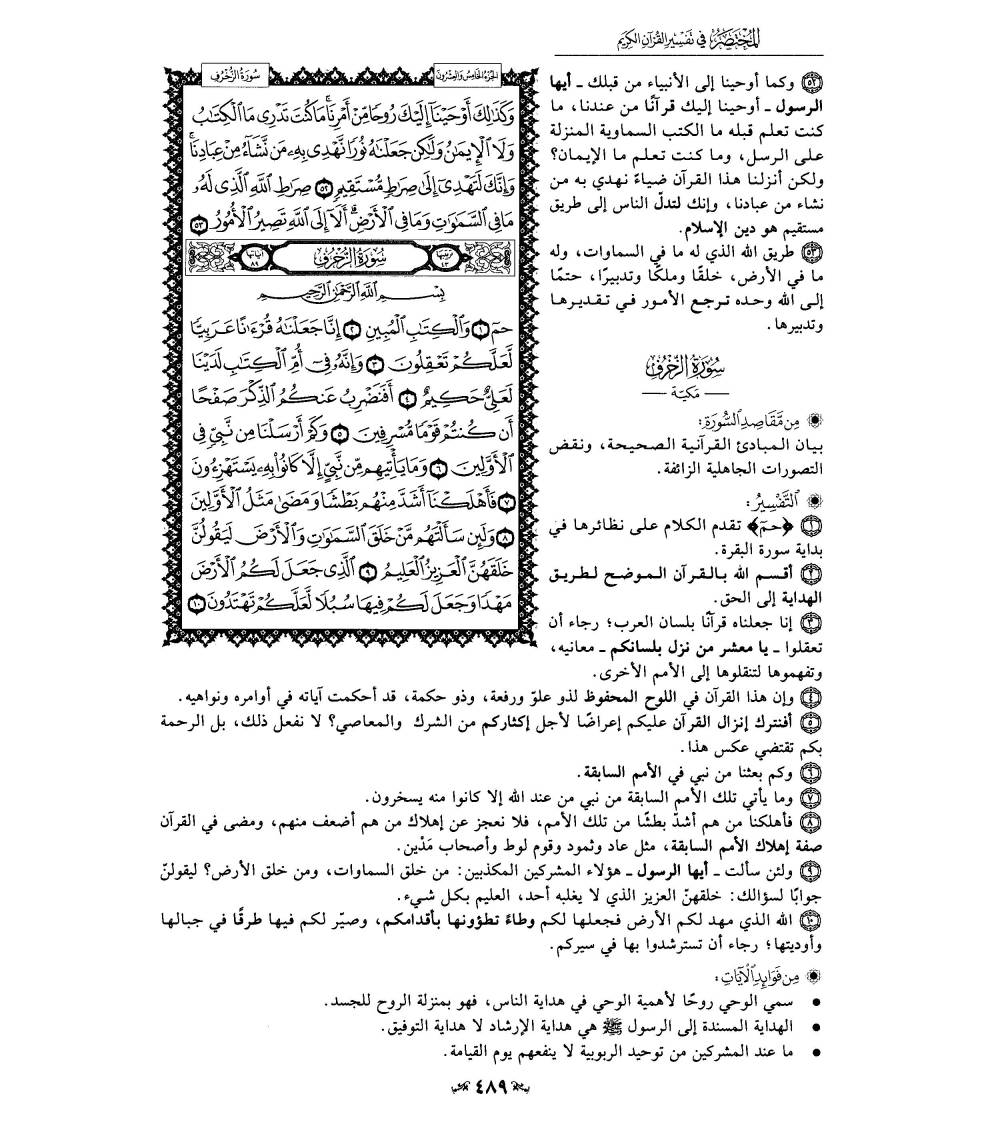 المختصر في تفسير القرآن الكريم
الجزء الخامس والعشرون
سورة الزخرف
وَكَذَٰلِكَ أَوْحَيْنَآ إِلَيْكَ رُوحًا مِّنْ أَمْرِنَا ۚ مَا كُنتَ تَدْرِى مَا ٱلْكِتَٰبُ
وَلَا ٱلْإِيمَٰنُ وَلَٰكِن جَعَلْنَٰهُ نُورًا نَّهْدِى بِهِۦ مَن نَّشَآءُ مِنْ عِبَادِنَا ۚ
وَإِنَّكَ لَتَهْدِىٓ إِلَىٰ صِرَٰطٍ مُّسْتَقِيمٍ ٥٢ صِرَٰطِ ٱللَّهِ ٱلَّذِى لَهُۥ
مَا فِى ٱلسَّمَٰوَٰتِ وَمَا فِى ٱلْأَرْضِ ۗ أَلَآ إِلَى ٱللَّهِ تَصِيرُ ٱلْأُمُورُ ٥٣
ترتيبها ٤٣ سورة الزخرف آياتها ٨٩
بِسْمِ ٱللَّهِ ٱلرَّحْمَٰنِ ٱلرَّحِيمِ
حمٓ ١ وَٱلْكِتَٰبِ ٱلْمُبِينِ ٢ إِنَّا جَعَلْنَٰهُ قُرْءَٰنًا عَرَبِيًّا
لَّعَلَّكُمْ تَعْقِلُونَ ٣ وَإِنَّهُۥ فِىٓ أُمِّ ٱلْكِتَٰبِ لَدَيْنَا
لَعَلِىٌّ حَكِيمٌ ٤ أَفَنَضْرِبُ عَنكُمُ ٱلذِّكْرَ صَفْحًا
أَن كُنتُمْ قَوْمًا مُّسْرِفِينَ ٥ وَكَمْ أَرْسَلْنَا مِن نَّبِىٍّ فِى
ٱلْأَوَّلِينَ ٦ وَمَا يَأْتِيهِم مِّن نَّبِىٍّ إِلَّا كَانُوا۟ بِهِۦ يَسْتَهْزِءُونَ
٧ فَأَهْلَكْنَآ أَشَدَّ مِنْهُم بَطْشًا وَمَضَىٰ مَثَلُ ٱلْأَوَّلِينَ
٨ وَلَئِن سَأَلْتَهُم مَّنْ خَلَقَ ٱلسَّمَٰوَٰتِ وَٱلْأَرْضَ لَيَقُولُنَّ
خَلَقَهُنَّ ٱلْعَزِيزُ ٱلْعَلِيمُ ٩ ٱلَّذِى جَعَلَ لَكُمُ ٱلْأَرْضَ
مَهْدًا وَجَعَلَ لَكُمْ فِيهَا سُبُلًا لَّعَلَّكُمْ تَهْتَدُونَ ١٠
٥٢ وكما أوحينا إلى الأنبياء من قبلك ـ أيها
الرسول ـ أوحينا إليك قرآنًا من عندنا، ما
كنت تعلم قبله ما الكتب السماوية المنزلة
على الرسل، وما كنت تعلم ما الإيمان؟
ولكن أنزلنا هذا القرآن ضياءً نهدي به من
نشاء من عبادنا، وإنك لتدلّ الناس إلى طريق
مستقيم هو دين الإسلام.
٥٣ طريق الله الذي له ما في السماوات، وله
ما في الأرض، خلقًا وملكًا وتدبيرًا، حتمًا
إلى الله وحده ترجع الأمور في تقديرها
وتدبيرها.
سورة الزخرف
— مكية —
من مقاصد السورة:
بيان المبادئ القرآنية الصحيحة، ونقض
التصورات الجاهلية الزائفة.
التفسير:
١ ﴿حمٓ﴾ تقدم الكلام على نظائرها في
بداية سورة البقرة.
٢ أقسم الله بالقرآن الموضح لطريق
الهداية إلى الحق.
٣ إنا جعلناه قرآنًا بلسان العرب؛ رجاء أن
تعقلوا ـ يا معشر من نزل بلسانكم ـ معانيه،
وتفهموها لتنقلوها إلى الأمم الأخرى.
٤ وإن هذا القرآن في اللوح المحفوظ لذو علوّ ورفعة، وذو حكمة، قد أحكمت آياته في أوامره ونواهيه.
٥ أفنترك إنزال القرآن عليكم إعراضًا لأجل إكثاركم من الشرك والمعاصي؟ لا نفعل ذلك، بل الرحمة
بكم تقتضي عكس هذا.
٦ وكم بعثنا من نبي في الأمم السابقة.
٧ وما يأتي تلك الأمم السابقة من نبي من عند الله إلا كانوا منه يسخرون.
٨ فأهلكنا من هم أشدّ بطشًا من تلك الأمم، فلا نعجز عن إهلاك من هم أضعف منهم، ومضى في القرآن
صفة إهلاك الأمم السابقة، مثل عاد وثمود وقوم لوط وأصحاب مَدْين.
٩ ولئن سألت ـ أيها الرسول ـ هؤلاء المشركين المكذبين: من خلق السماوات، ومن خلق الأرض؟ ليقولنّ
جوابًا لسؤالك: خلقهنّ العزيز الذي لا يغلبه أحد، العليم بكل شيء.
١٠ الله الذي مهد لكم الأرض فجعلها لكم وطاءً تطؤونها بأقدامكم، وصيّر لكم فيها طرقًا في جبالها
وأوديتها؛ رجاء أن تسترشدوا بها في سيركم.
من فوائد الآيات:
• سمي الوحي روحًا لأهمية الوحي في هداية الناس، فهو بمنزلة الروح للجسد.
• الهداية المسندة إلى الرسول ﷺ هي هداية الإرشاد لا هداية التوفيق.
• ما عند المشركين من توحيد الربوبية لا ينفعهم يوم القيامة.
٤٨٩